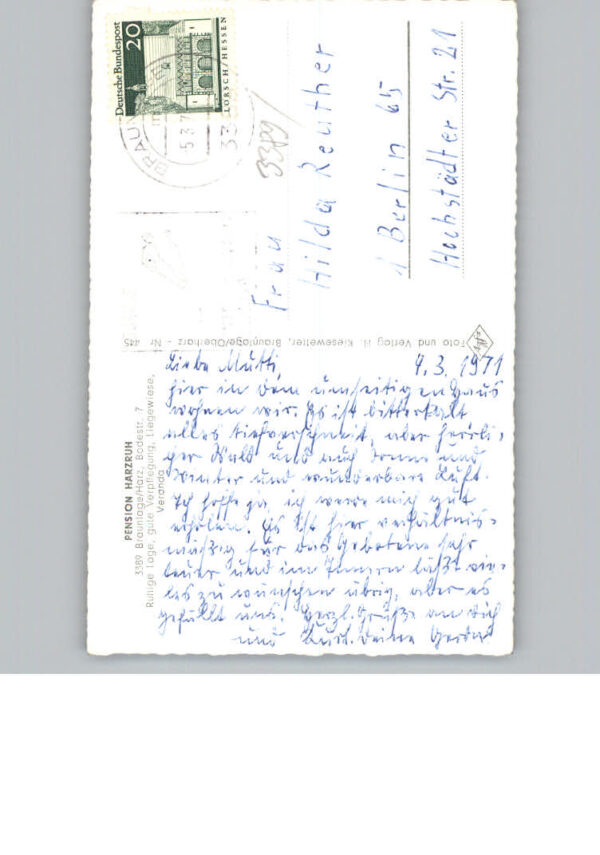 Deutsche Bundespost
20
LORSCH/HESSEN
BRAUN
5.3.7
33
3389
Frau
Hilda Reuther
1 Berlin 65
Hochstädter Str. 21
Foto und Verlag H. Kiesewetter, Braunlage/Oberharz - Nr. 445
Agfa
PENSION HARZRUH
3389 Braunlage/Harz, Bodestr. 7
Ruhige Lage, gute Verpflegung, Liegewiese,
Veranda
Liebe Mutti, 4.3.1971
hier in dem umseitigen Haus
wohnen wir. Es ist bitterkalt
alles tiefverschneit, aber herrli-
ger Wald und auch Sonne und
Winter und wunderbare Luft.
Ich hoffe ja, ich werde mich gut
erholen. Es ist hier verhältnis-
mäßig für das Gebotene sehr
teuer und im Innern läßt vie-
les zu wünschen übrig, aber es
gefällt uns. Herzl. Grüße an Dich
und Deine